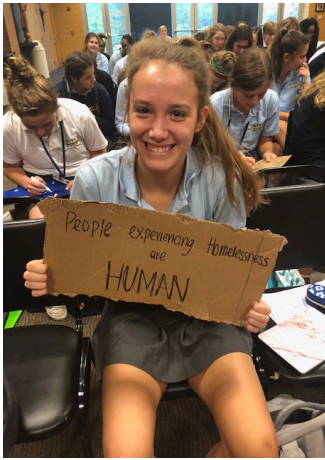 People experiencing Homelessness
are
HUMAN